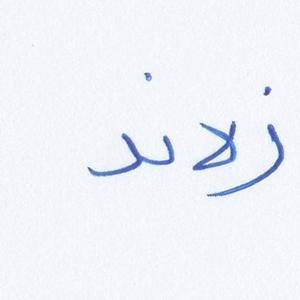 زلاند